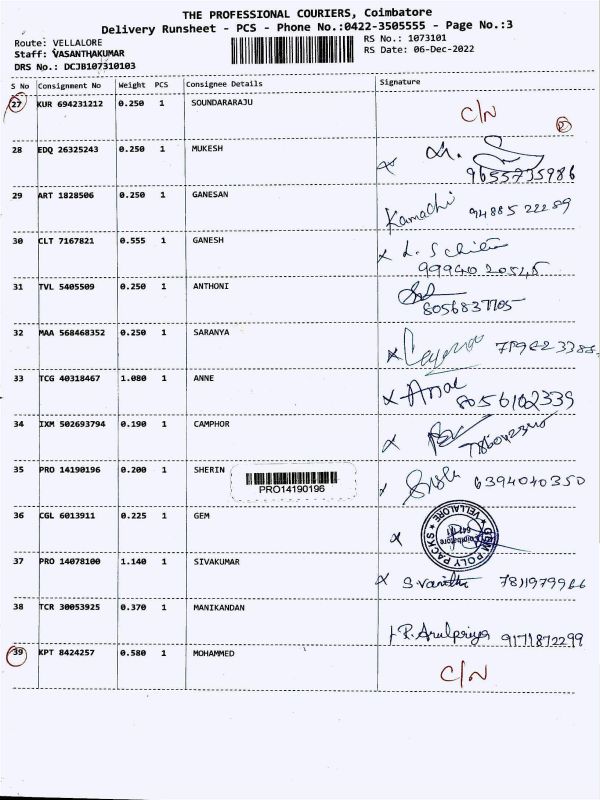 THE PROFESSIONAL COURIERS, Coimbatore
Delivery Runsheet - PCS - Phone No.:0422-3505555 - Page No.:3
Route: VELLALORE
RS No.: 1073101
Staff: VASANTHAKUMAR
RS Date: 06-Dec-2022
DRS No.: DCJB107310103
S No Consignment No Weight PCS Consignee Details Signature
27 KUR 694231212 0.250 1 SOUNDARARAJU C/N
28 EDQ 26325243 0.250 1 MUKESH 9655735986
29 ART 1828506 0.250 1 GANESAN Kamachi 94885 22289
30 CLT 7167821 0.555 1 GANESH
31 TVL 5405509 0.250 1 ANTHONI
32 MAA 568468352 0.250 1 SARANYA
33 TCG 40318467 1.080 1 ANNE 8056102339
34 IXM 502693794 0.190 1 CAMPHOR
35 PRO 14190196 0.200 1 SHERIN 6394040350
PRO14190196
36 CGL 6013911 0.225 1 GEM GEM POLY PACKS VELLALORE
37 PRO 14078100 1.140 1 SIVAKUMAR
38 TCR 30053925 0.370 1 MANIKANDAN P. Arulpriya 9171872299
39 KPT 8424257 0.580 1 MOHAMMED C/N